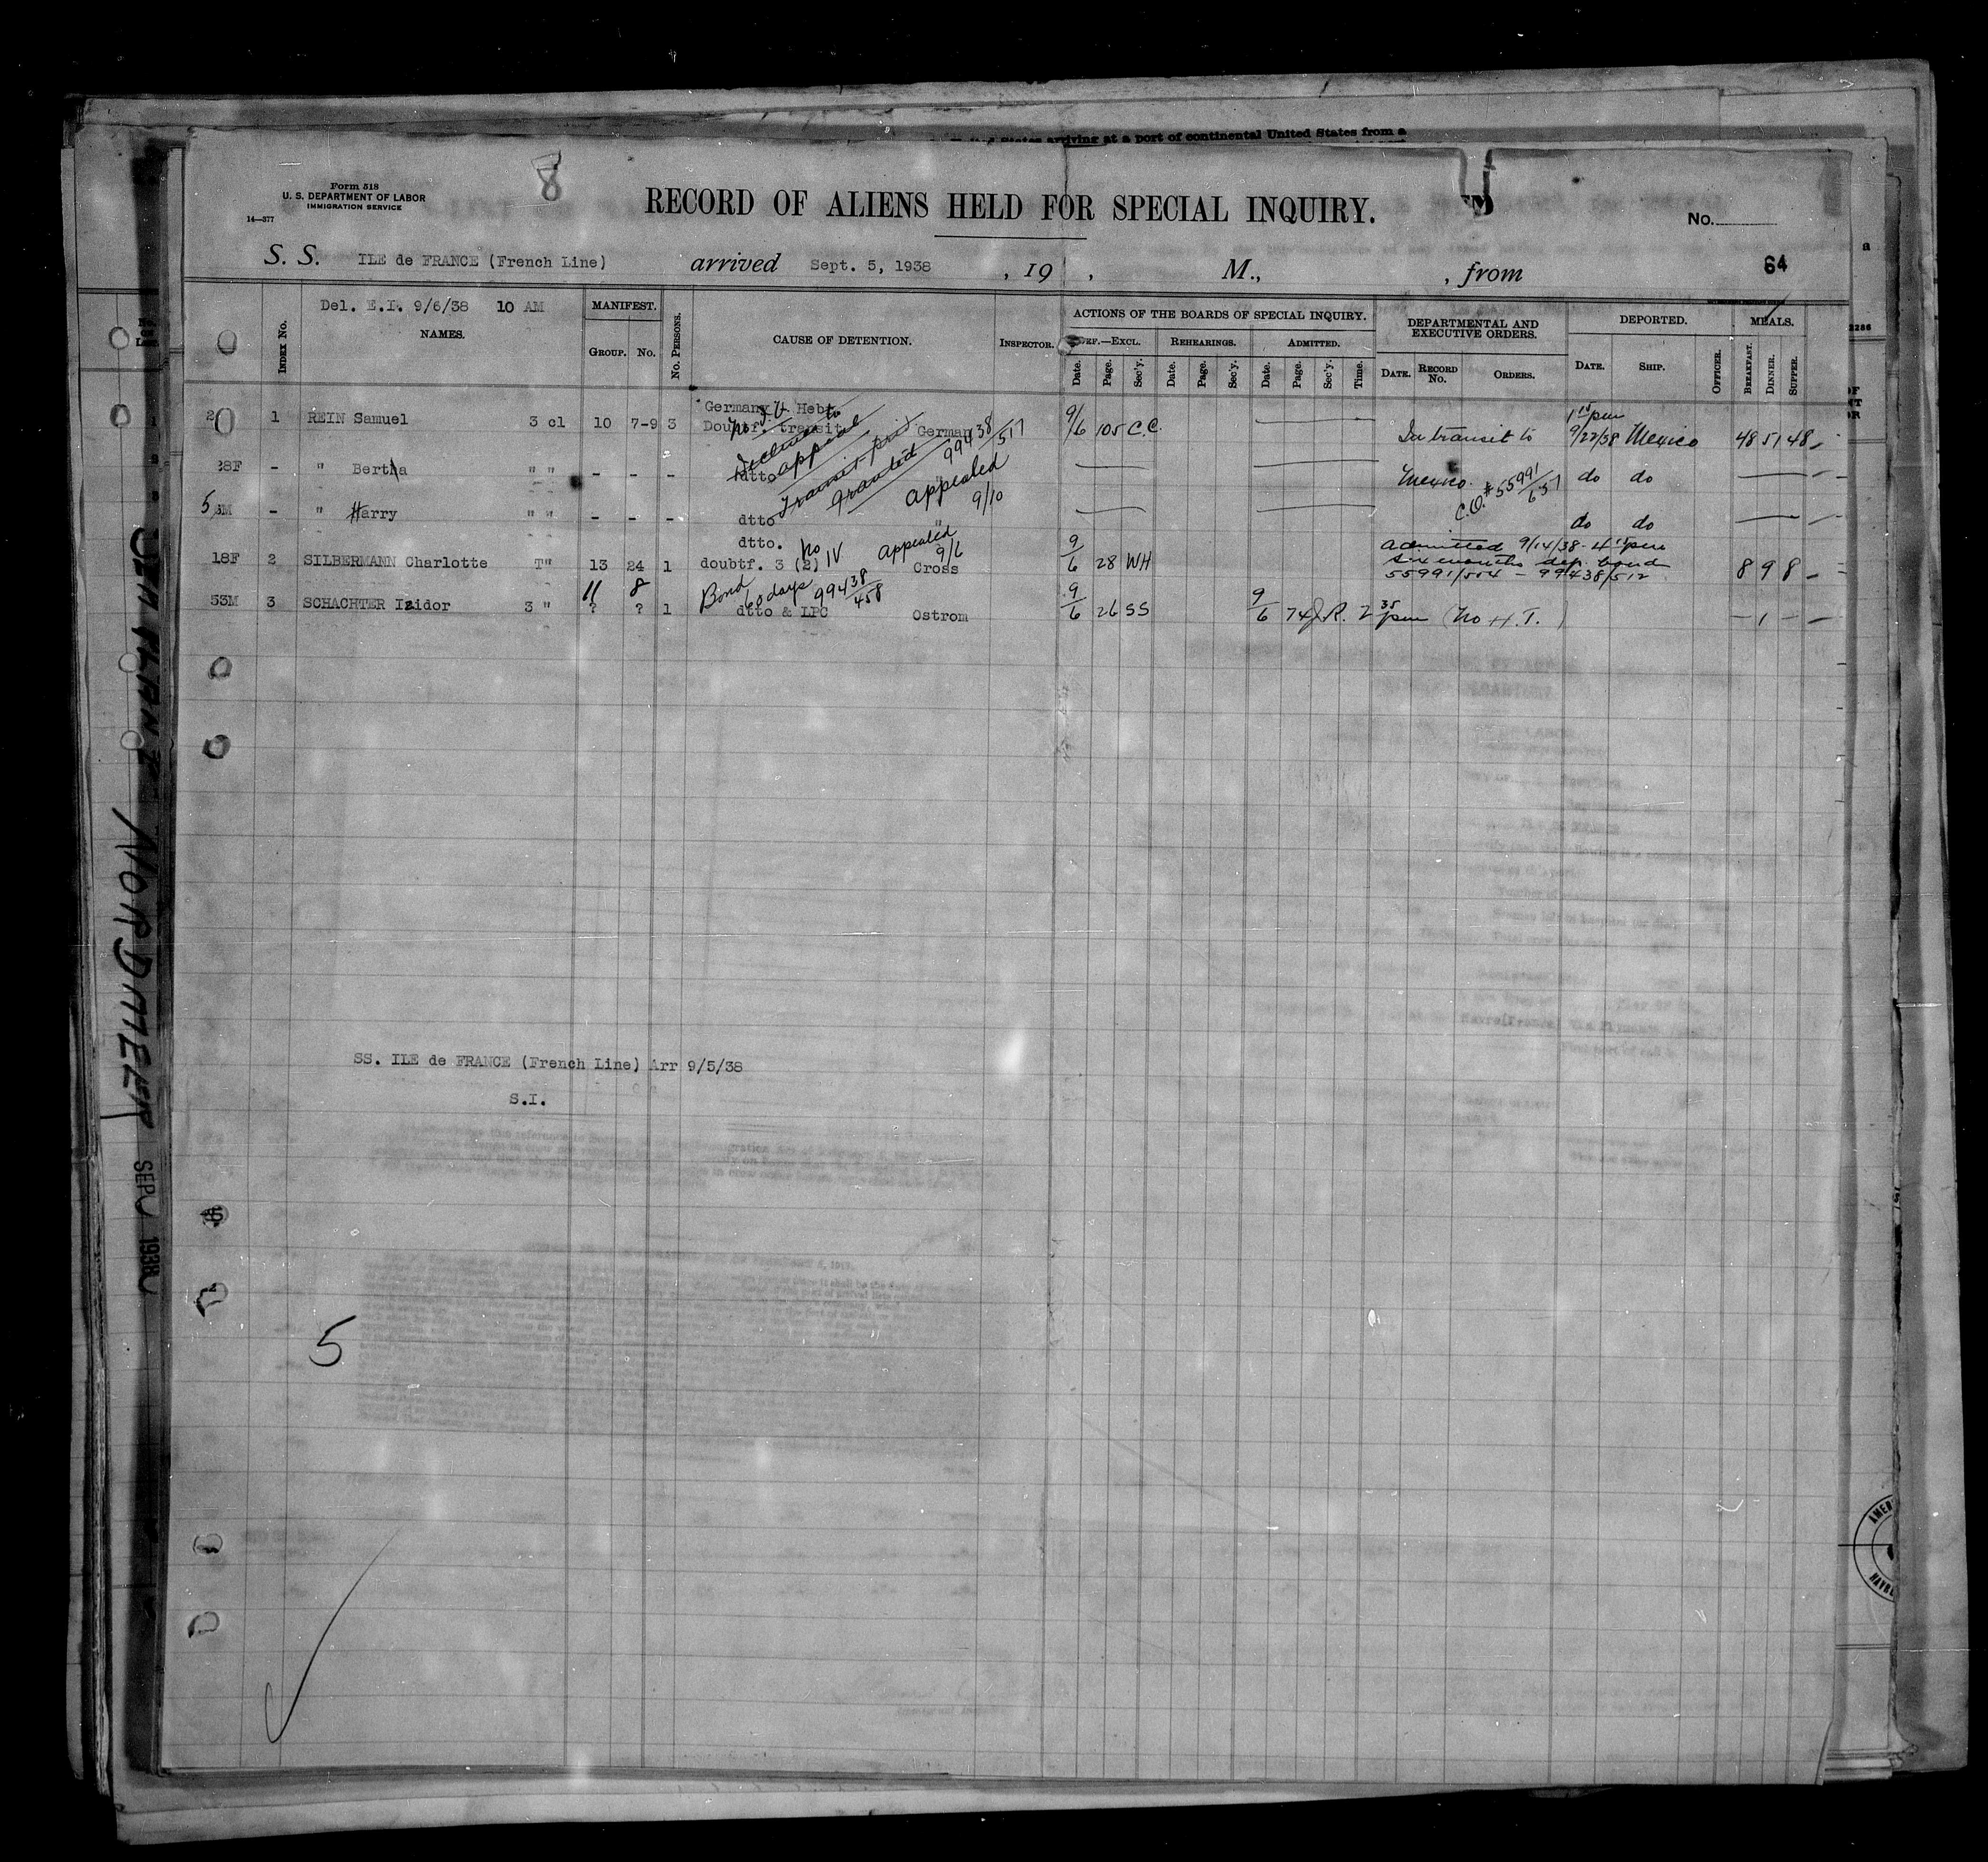 States arriving at a port of continental United States from a
Form 518
U. S. DEPARTMENT OF LABOR
IMMIGRATION SERVICE
14—377
8
RECORD OF ALIENS HELD FOR SPECIAL INQUIRY.
No.
S. S. ILE de FRANCE (French Line) arrived Sept. 5, 1938 , 19 , M., , from
64
Del. E.I. 9/6/38 10 AM
INDEX No. NAMES. MANIFEST. GROUP. No. No. PERSONS. CAUSE OF DETENTION. INSPECTOR. ACTIONS OF THE BOARDS OF SPECIAL INQUIRY. DEPARTMENTAL AND EXECUTIVE ORDERS. DEPORTED. MEALS.
DEF.—EXCL. REHEARINGS. ADMITTED.
Date. Page. Sec'y. Date. Page. Sec'y. Date. Page. Sec'y. Time. DATE. RECORD No. ORDERS. DATE. SHIP. OFFICER. BREAKFAST. DINNER. SUPPER.
Germany Heb.
1 REIN Samuel 3 cl 10 7-9 3 Doubtf. transit German 9/6 105 C.C. In transit to 1 15 pm 9/22/38 Mexico 48 51 48
Declines to appeal
Transit priv granted
99438/517
Appealed 9/10
28F - " Bertha " " - - - dtto " Mexico. C.O.# 55991/651 do do
- " Harry " " - - - dtto " do do
dtto. no IV Appealed 9/6
18F 2 SILBERMANN Charlotte T" 13 24 1 doubtf. 3 (2) Cross 9/6 28 WH Admitted 9/14/38 - 4 15 pm
six months dep. bond
55991/554 - 99438/512 8 9 8
11 8 Bond 60 days 99438/458
53M 3 SCHACHTER Izidor 3 " ? ? 1 dtto & LPC Ostrom 9/6 26 SS 9/6 74 J.R. 2 35 pm (No H.T.) - 1 -
SS. ILE de FRANCE (French Line) Arr 9/5/38
S.I.
5
NORDMEER
SEP 1938